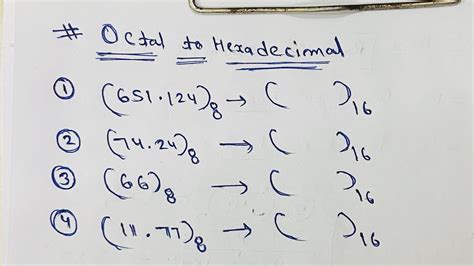 # Octal to Hexadecimal
① (651.124)₈ → ( )₁₆
② (74.24)₈ → ( )₁₆
③ (66)₈ → ( )₁₆
④ (11.77)₈ → ( )₁₆